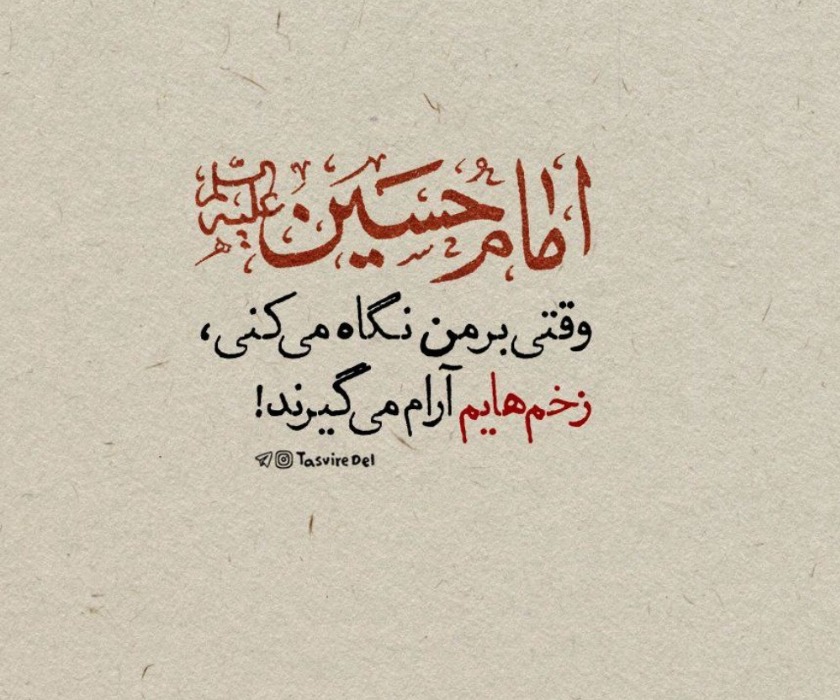 امام حسین علیه السلام
وقتی بر من نگاه می‌کنی،
زخم‌هایم آرام می‌گیرند!
TasvireDel